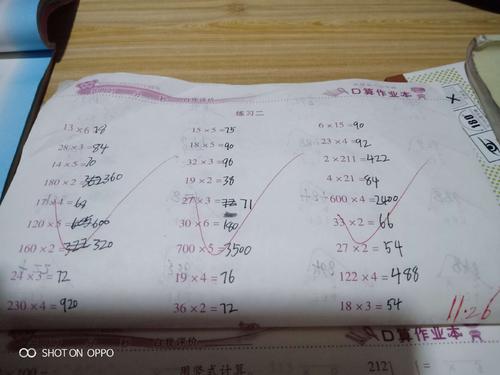 口算作业本
练习二
13×6 78 15×5=75 6×15=90
28×3=84 18×5=90 23×4=92
14×5=70 32×3=96 2×211=422
180×2=360 19×2=38 4×21=84
17×4=68 27×3=71 600×4=2400
120×5=600 30×6=180 33×2=66
160×2=320 700×5=3500 27×2=54
24×3=72 19×4=76 122×4=488
230×4=920 36×2=72 18×3=54
11.26
口算作业本
用竖式计算
212
180
SHOT ON OPPO